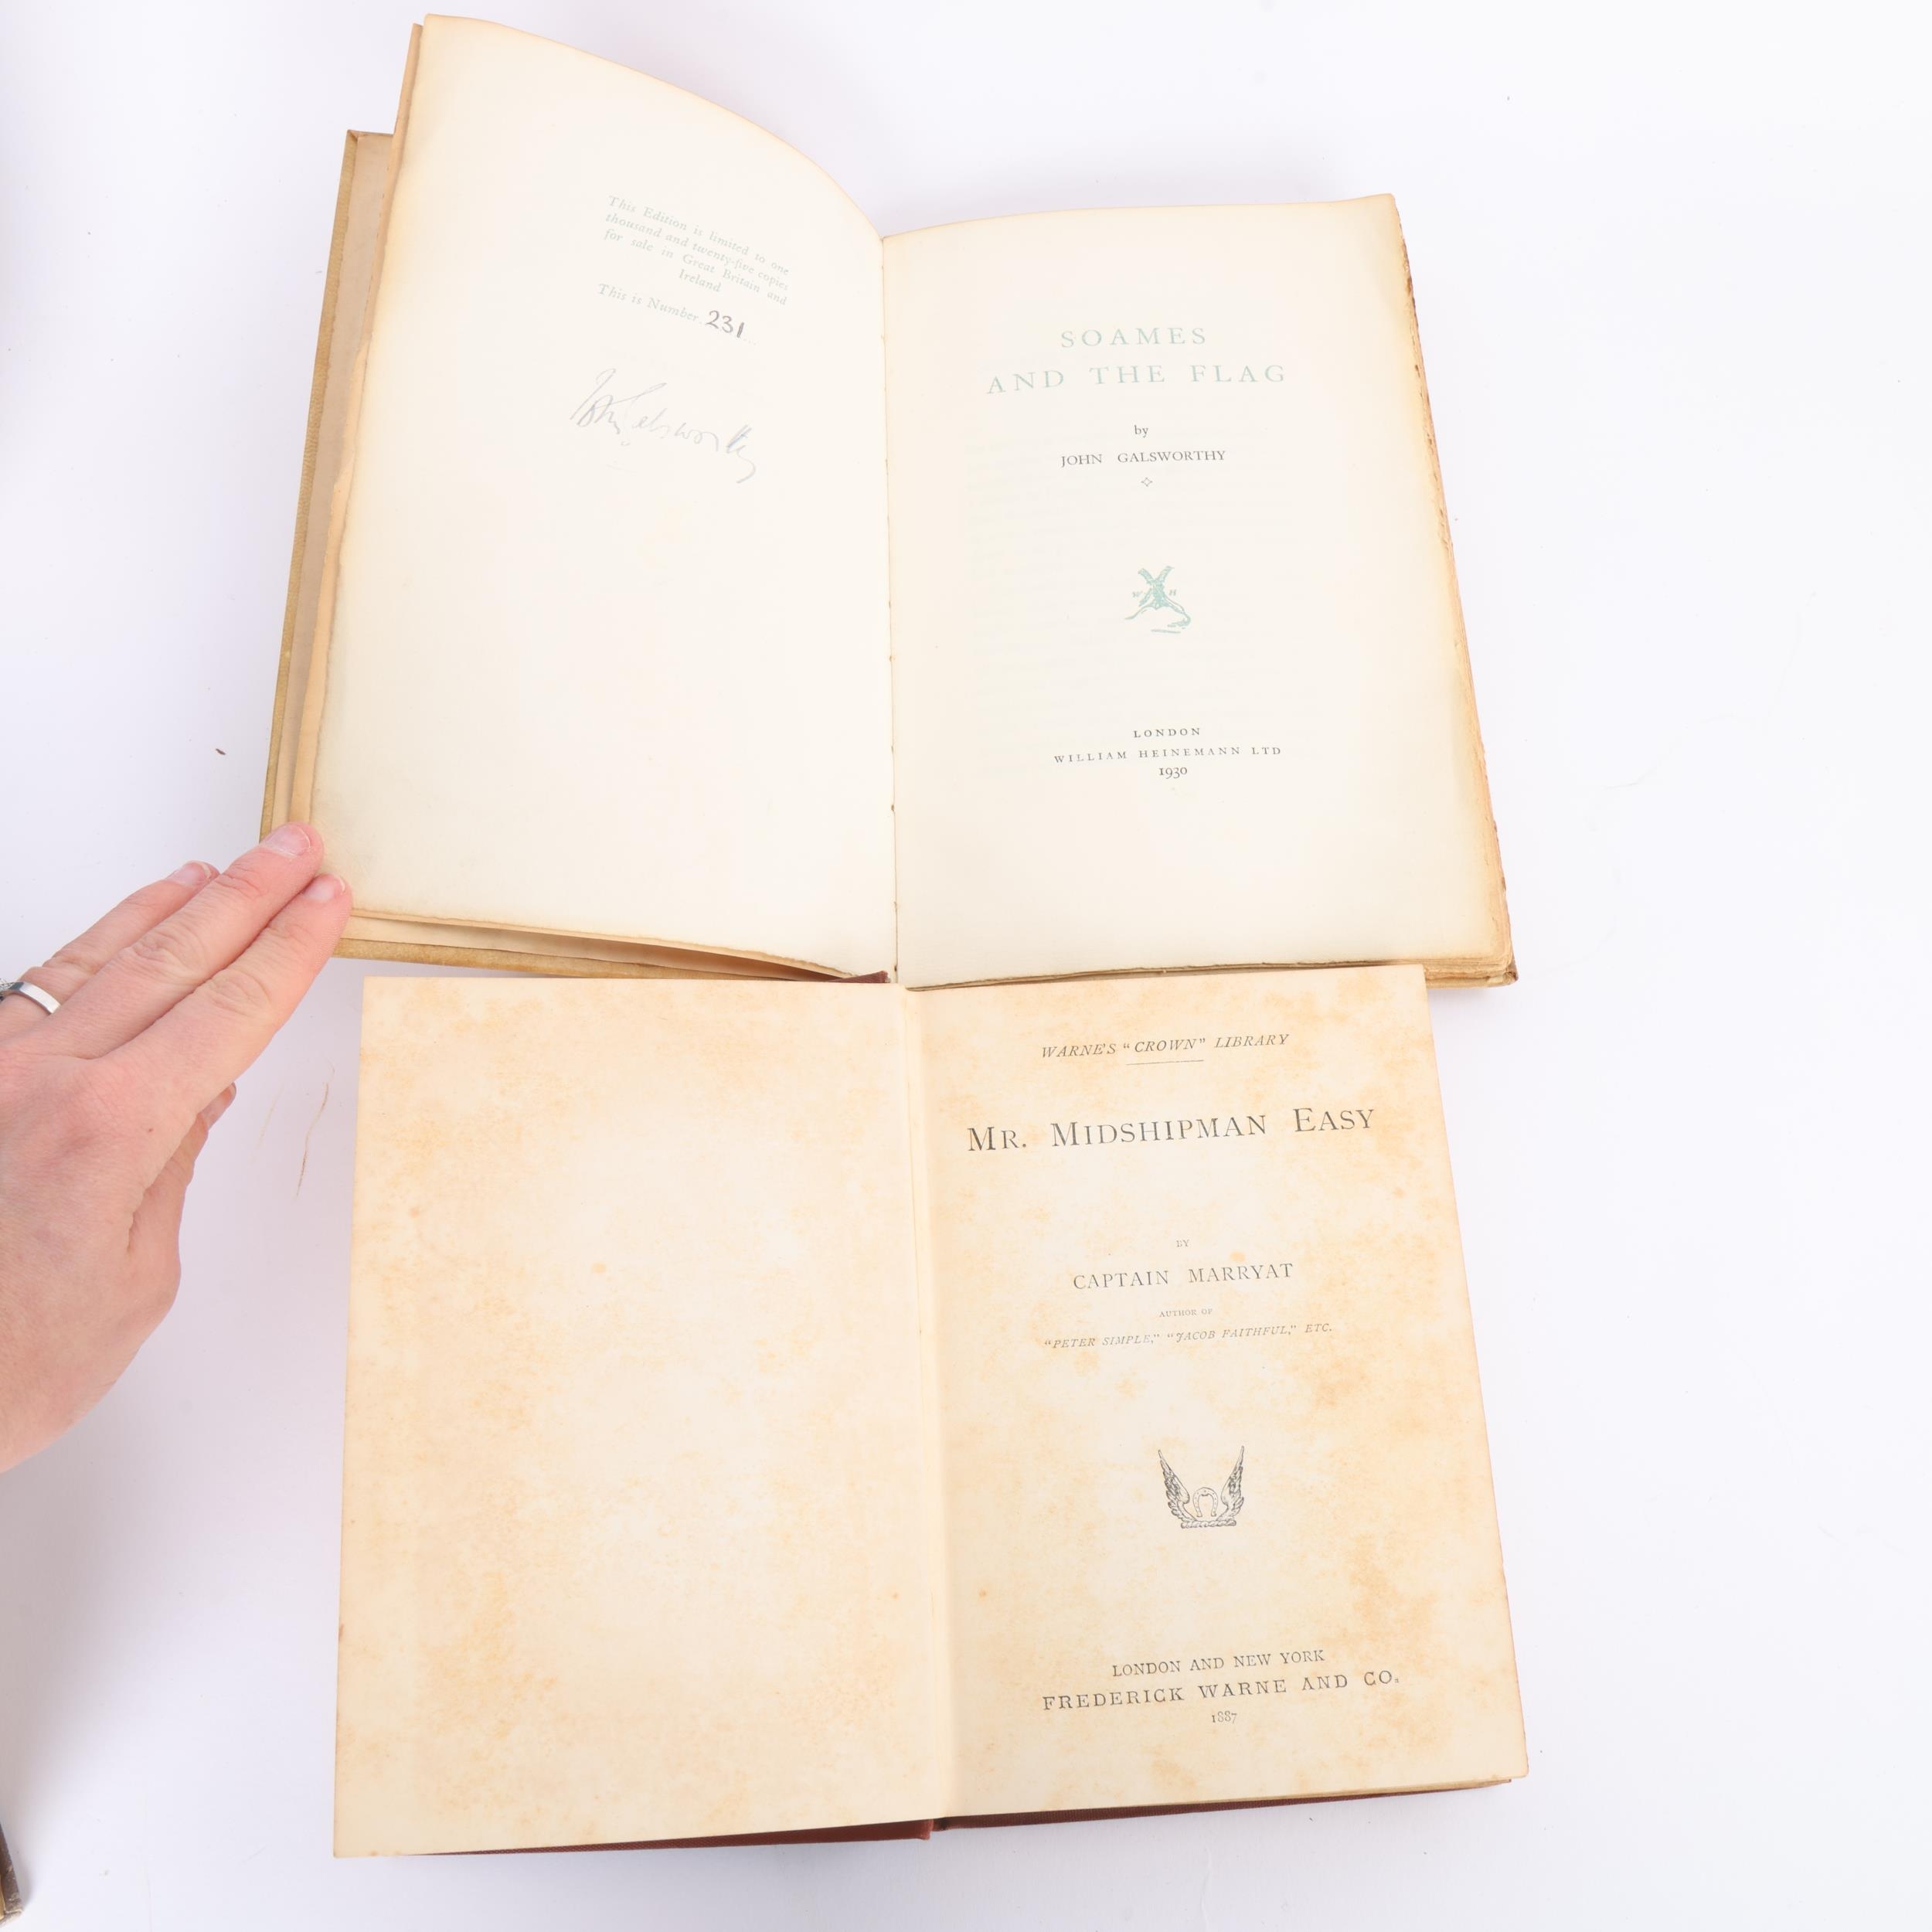 This Edition is limited to one
thousand and twenty-five copies
for sale in Great Britain and
Ireland
This is Number 231
John Galsworthy
SOAMES
AND THE FLAG
by
JOHN GALSWORTHY
W H
LONDON
WILLIAM HEINEMANN LTD
1930
WARNE'S "CROWN" LIBRARY
MR. MIDSHIPMAN EASY
BY
CAPTAIN MARRYAT
AUTHOR OF
"PETER SIMPLE," "JACOB FAITHFUL," ETC.
LONDON AND NEW YORK
FREDERICK WARNE AND CO.
1887